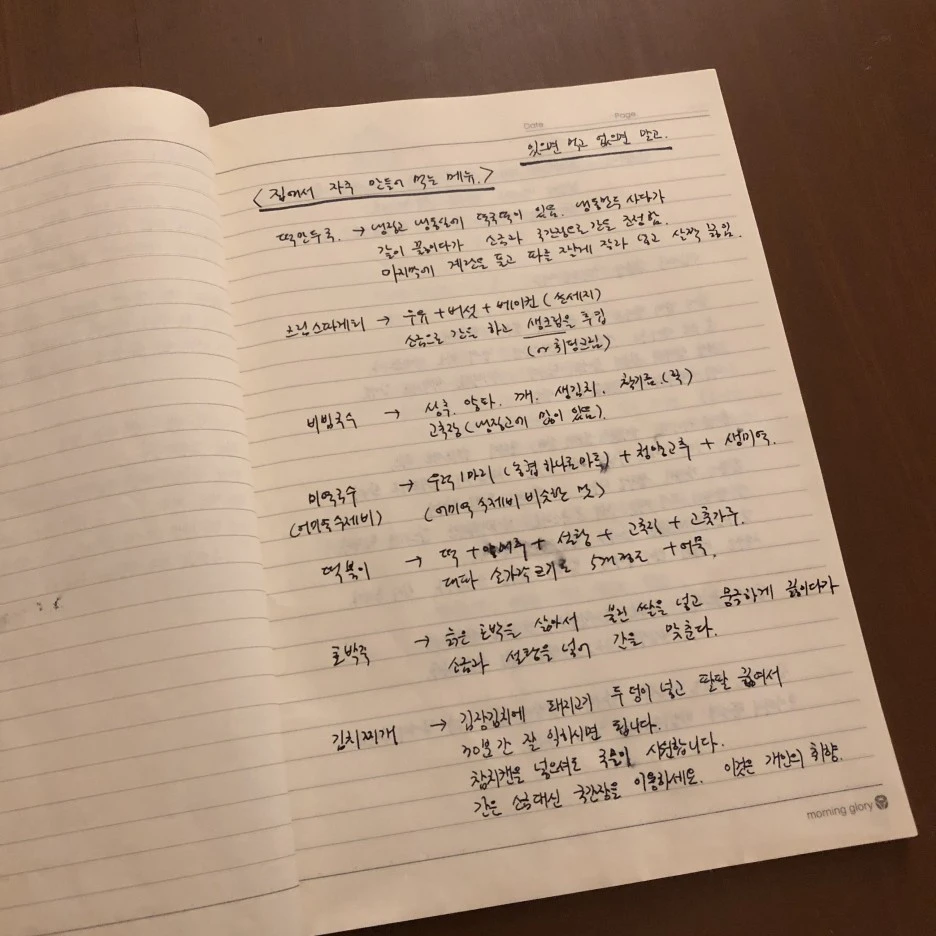 Date Page
있으면 먹고 없으면 말고.
<집에서 자주 만들어 먹는 메뉴.>
떡만두국. → 냉장고 냉동실에 떡국떡이 있음. 냉동만두 사다가
같이 끓이다가 소금과 국간장으로 간을 조성함.
마지막에 계란을 풀고 파를 잘게 잘라 넣고 살짝 끓임.
크림스파게티 → 우유+버섯+베이컨(쏘세지)
소금으로 간을 하고 생크림을 투입
(or 휘핑크림)
비빔국수 → 상추. 양파. 깨. 생김치. 참기름.(꼭)
고추장(냉장고에 많이 있음).
미역국수 → 우럭1마리(농협 하나로마트)+청양고추+생미역.
(어미역수제비) (어미역수제비 비슷한 맛)
떡볶이 → 떡+ + 설탕+고추장+고춧가루.
대파 손가락크기로 5개정도 +어묵.
호박죽 → 늙은 호박을 삶아서 불린 쌀을 넣고 뭉근하게 끓이다가
소금과 설탕을 넣어 간을 맞춘다.
김치찌개 → 김장김치에 돼지고기 두 덩이 넣고 팔팔 끓여서
30분간 잘 익히시면 됩니다.
참치캔을 넣으셔도 국물이 시원합니다.
간은 소금대신 국간장을 이용하세요. 이것은 개인의 취향.
morning glory